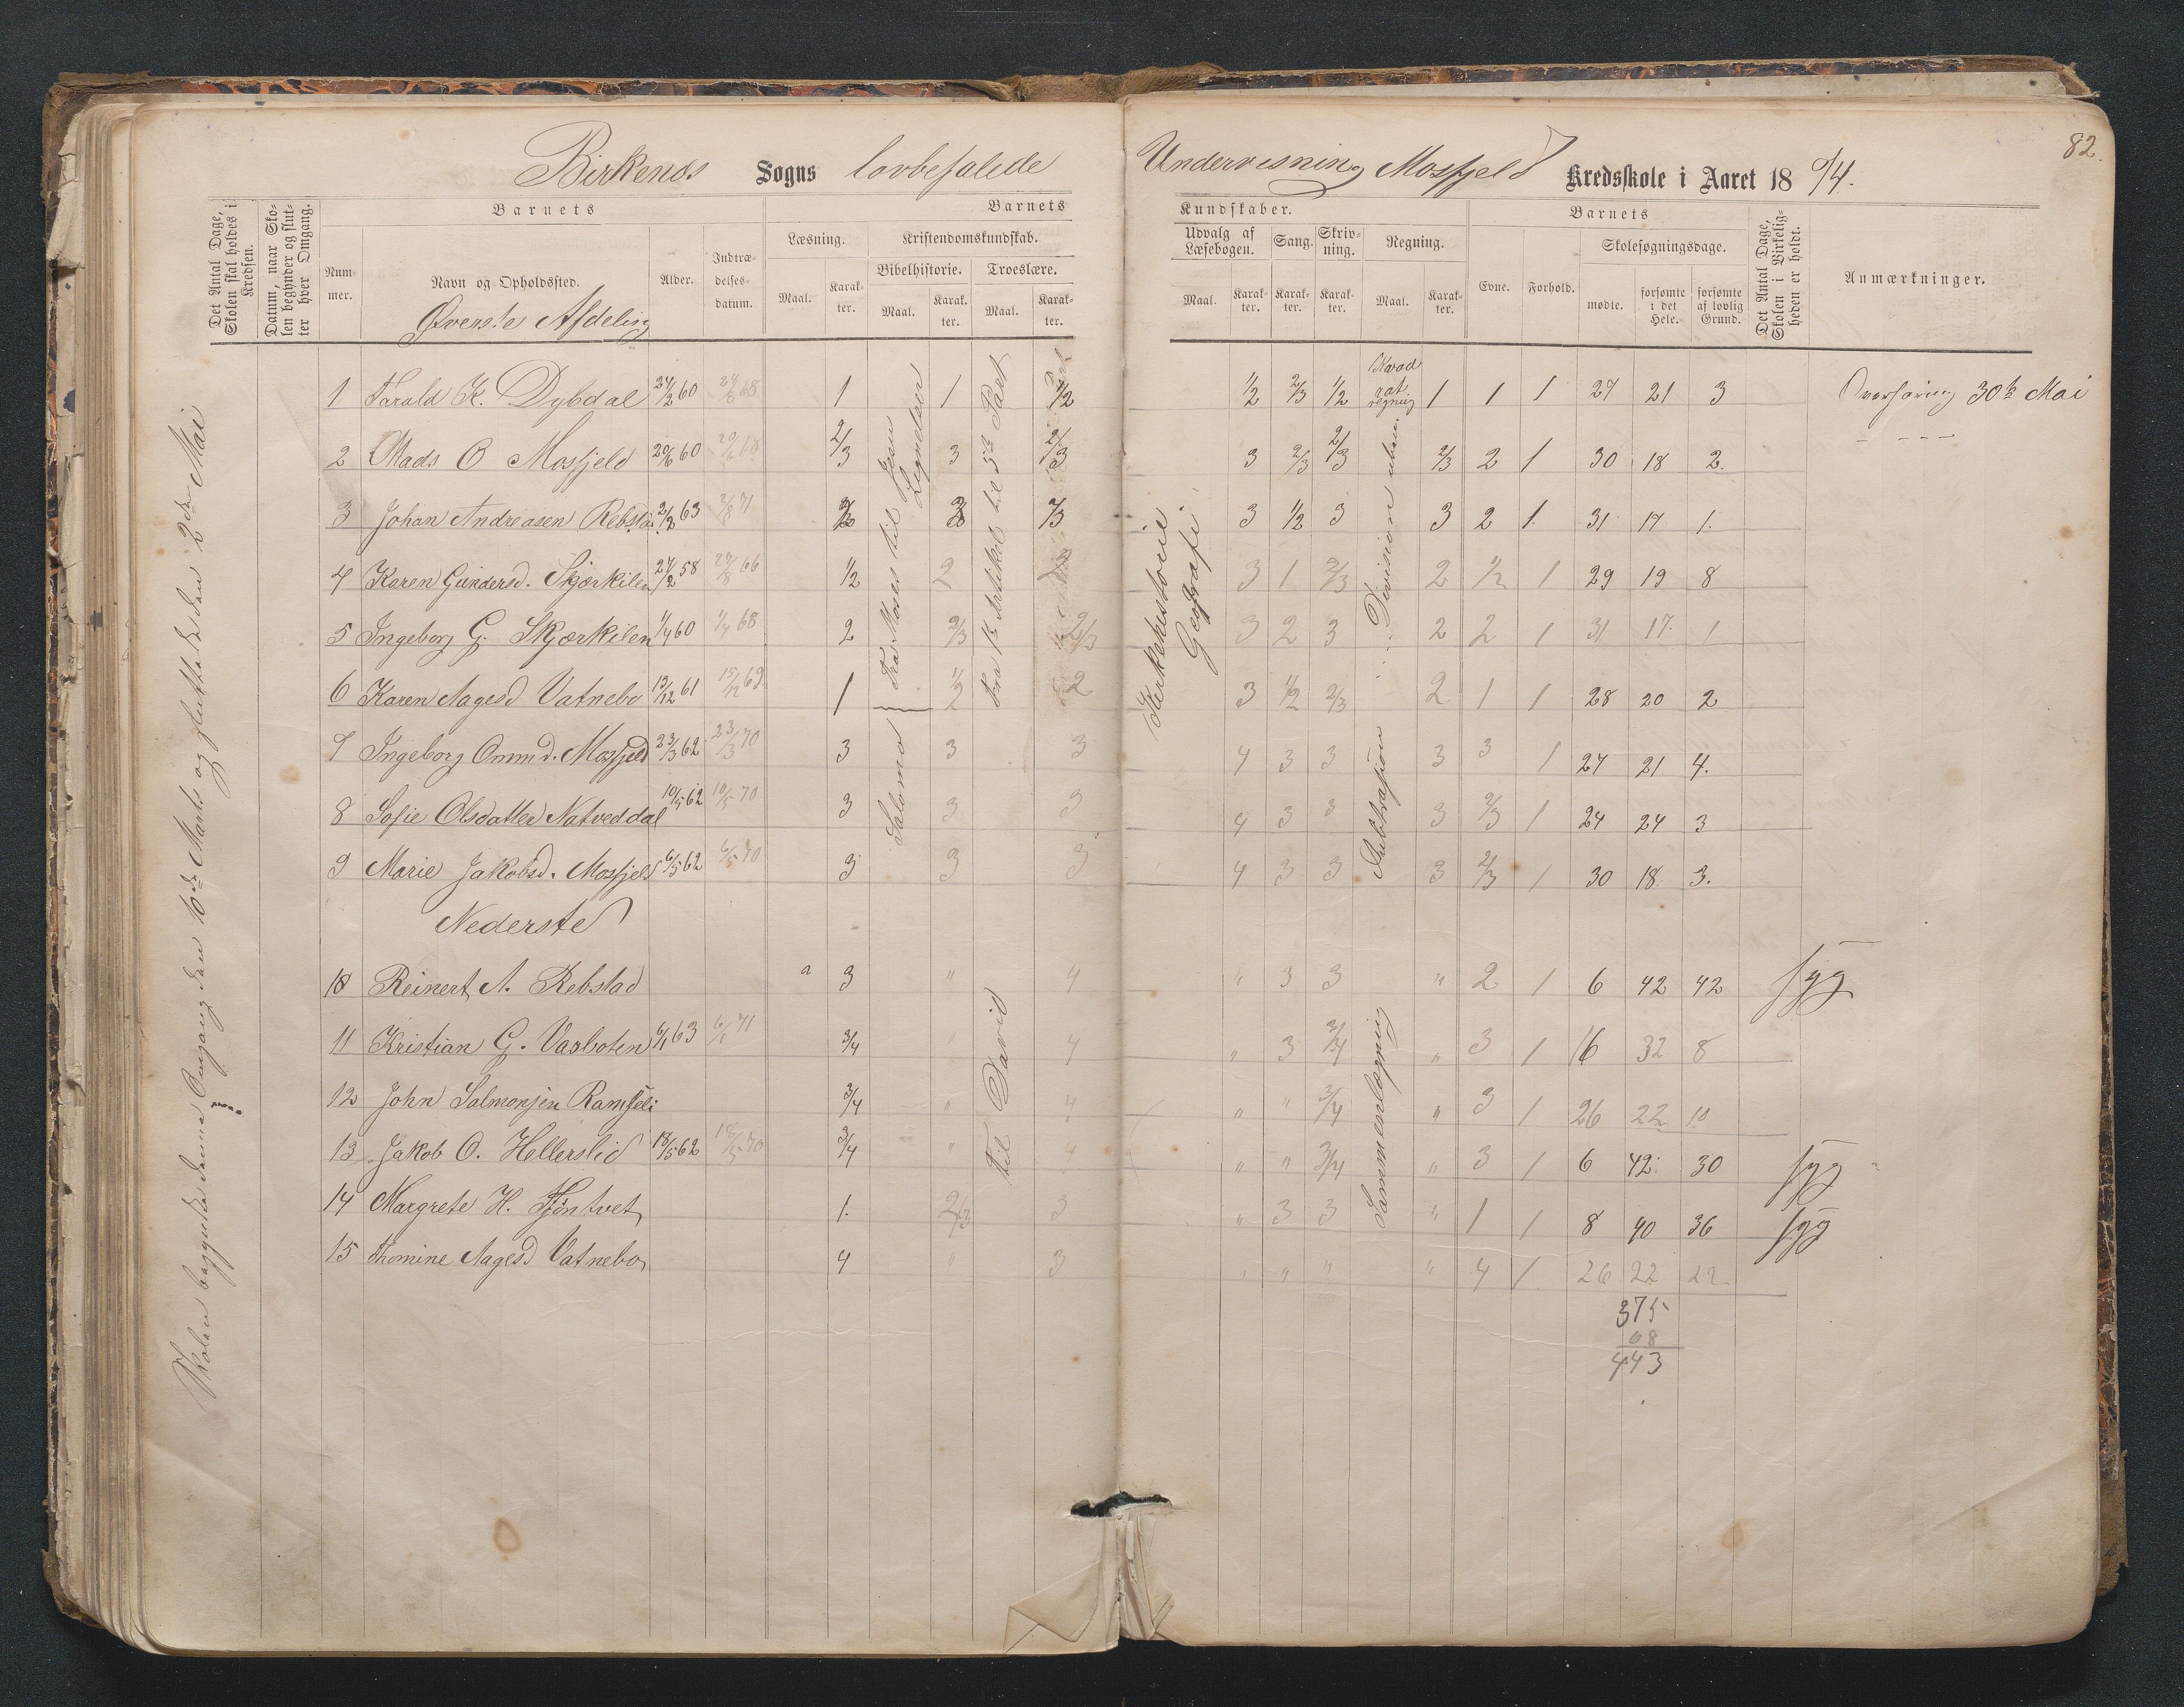 Birkenæs Sogns lovbefalede Undervisning Mosfjeld Kredsskole i Aaret 1874.
82.
Det Antal Dage, Skolen skal holdes i Kredsen.
Datum, naar Skolen begynder og slutter hver Omgang.
Barnets
Nummer.
Navn og Opholdssted.
Alder.
Indtrædelsesdatum.
Barnets
Læsning.
Maal.
Karakter.
Kristendomskundskab.
Bibelhistorie.
Maal.
Karakter.
Troeslære.
Maal.
Karakter.
Kundskaber.
Udvalg af Læsebogen.
Maal.
Karakter.
Sang.
Karakter.
Skrivning.
Karakter.
Regning.
Maal.
Karakter.
Barnets
Evne.
Forhold.
Skolesøgningsdage.
mødte.
forsømte i det Hele.
forsømte af lovlig Grund.
Det Antal Dage, Skolen i Virkeligheden er holdt.
Anmærkninger.
Øverste Afdeling
Skolen begyndte denne Omgang den 16de Marts og sluttede den 2den Mai
Fra Moses til Jesu Lignelser
Salomo
Fra 1ste Artikel til 5te Part
Til David
Kirkehistorie
Geografi
Kvadratregning
Division uben.
Subtrasjon
Sammenlægning
1 Tarald K. Dybdal 24/2 60 24/2 68 1 1 1/2 1/2 2/3 1/2 1 1 1 27 21 3 Overhøring 30te Mai
2 Mads O Mosfjeld 20/6 60 20/6 68 2/3 3 2/3 3 2/3 2/3 2/3 2 1 30 18 2. – – – –
3 Johan Andreasen Rebstad 2/2 63 2/8 71 3 1/2 3 3 2 1. 31 17 1.
4 Karen Gundersd. Skjærkilen 24/2 58 66 1/2 2 3 1 2/3 2 1/2 1 29 19 8
5 Ingeborg G. Skjærkilen 1/4 60 1/4 68 2 2/3 2/3 3 2 3 2 2 1 31 17. 1
6 Karen Aagesd Vatnebo 13/12 61 15/12 69 1 1/2 2 3 1/2 2/3 2 1 1 28 20 2
7 Ingeborg Ommd. Mosfjeld 23/3 62 23/3 70 3 3 3 4 3 3 3 3 1 27 21 4.
8 Sofie Olsdatter Natveddal 10/5 62 10/5 70 3 3 3 4 3 3 3 2/3 1 24 24 3
9 Marie Jakobsd. Mosfjeld 6/5 62 6/5 70 3 3 3 4 3 3 3 2/3 1 30 18 3.
Nederste
10 Reinert A. Rebstad a 3 " 4 " 3 3 " 2 1 6 42 42 syg
11 Kristian G. Vasboten 6/1 63 6/1 71 3/4 " 4 " 3 3/4 " 3 1 16 32 8
12 John Salmonsen Ramseli 3/4 " 4 " " 3/4 " 3 1 26 22 10
13 Jakob O. Hellerslid 18/5 62 18/5 70 3/4 " 4 " " 3/4 " 3 1 6 42 30 syg
14 Margrete H. Tjöntvet 1. 2/3 3 " 3 3 " 1 1 8 40 36 syg
15 Thomine Aagesd Vatnebo 4 " 3 " " " " 4 1 26 22 22
375
68
443